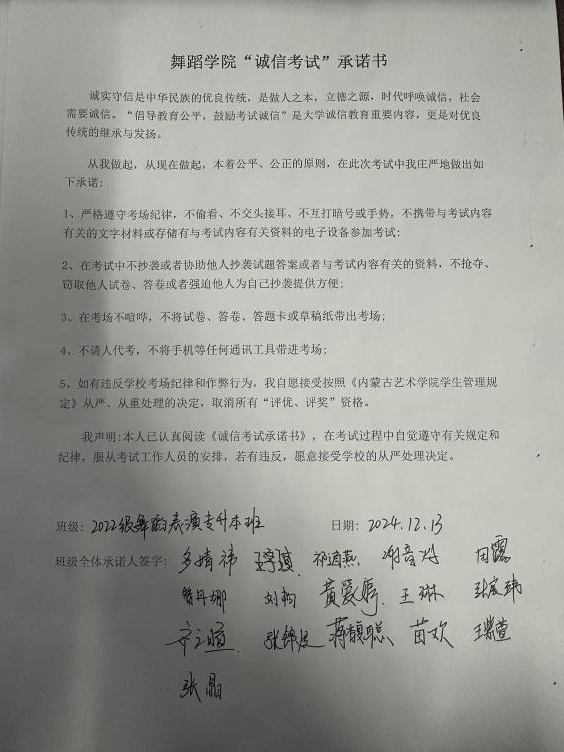 舞蹈学院“诚信考试”承诺书
诚实守信是中华民族的优良传统，是做人之本，立德之源，时代呼唤诚信，社会
需要诚信。“倡导教育公平，鼓励考试诚信”是大学诚信教育重要内容，更是对优良
传统的继承与发扬。
从我做起，从现在做起，本着公平、公正的原则，在此次考试中我庄严地做出如
下承诺：
1、严格遵守考场纪律，不偷看、不交头接耳、不互打暗号或手势，不携带与考试内容
有关的文字材料或存储有与考试内容有关资料的电子设备参加考试；
2、在考试中不抄袭或者协助他人抄袭试题答案或者与考试内容有关的资料，不抢夺、
窃取他人试卷、答卷或者强迫他人为自己抄袭提供方便；
3、在考场不喧哗，不将试卷、答卷、答题卡或草稿纸带出考场；
4、不请人代考，不将手机等任何通讯工具带进考场；
5、如有违反学校考场纪律和作弊行为，我自愿接受按照《内蒙古艺术学院学生管理规
定》从严、从重处理的决定，取消所有“评优、评奖”资格。
我声明：本人已认真阅读《诚信考试承诺书》，在考试过程中自觉遵守有关规定和
纪律，服从考试工作人员的安排，若有违反，愿意接受学校的从严处理决定。
班级：2022级舞蹈表演专升本班 日期：2024.12.13
班级全体承诺人签字： 多婧祎 田露
王琳
苗欢
张晶